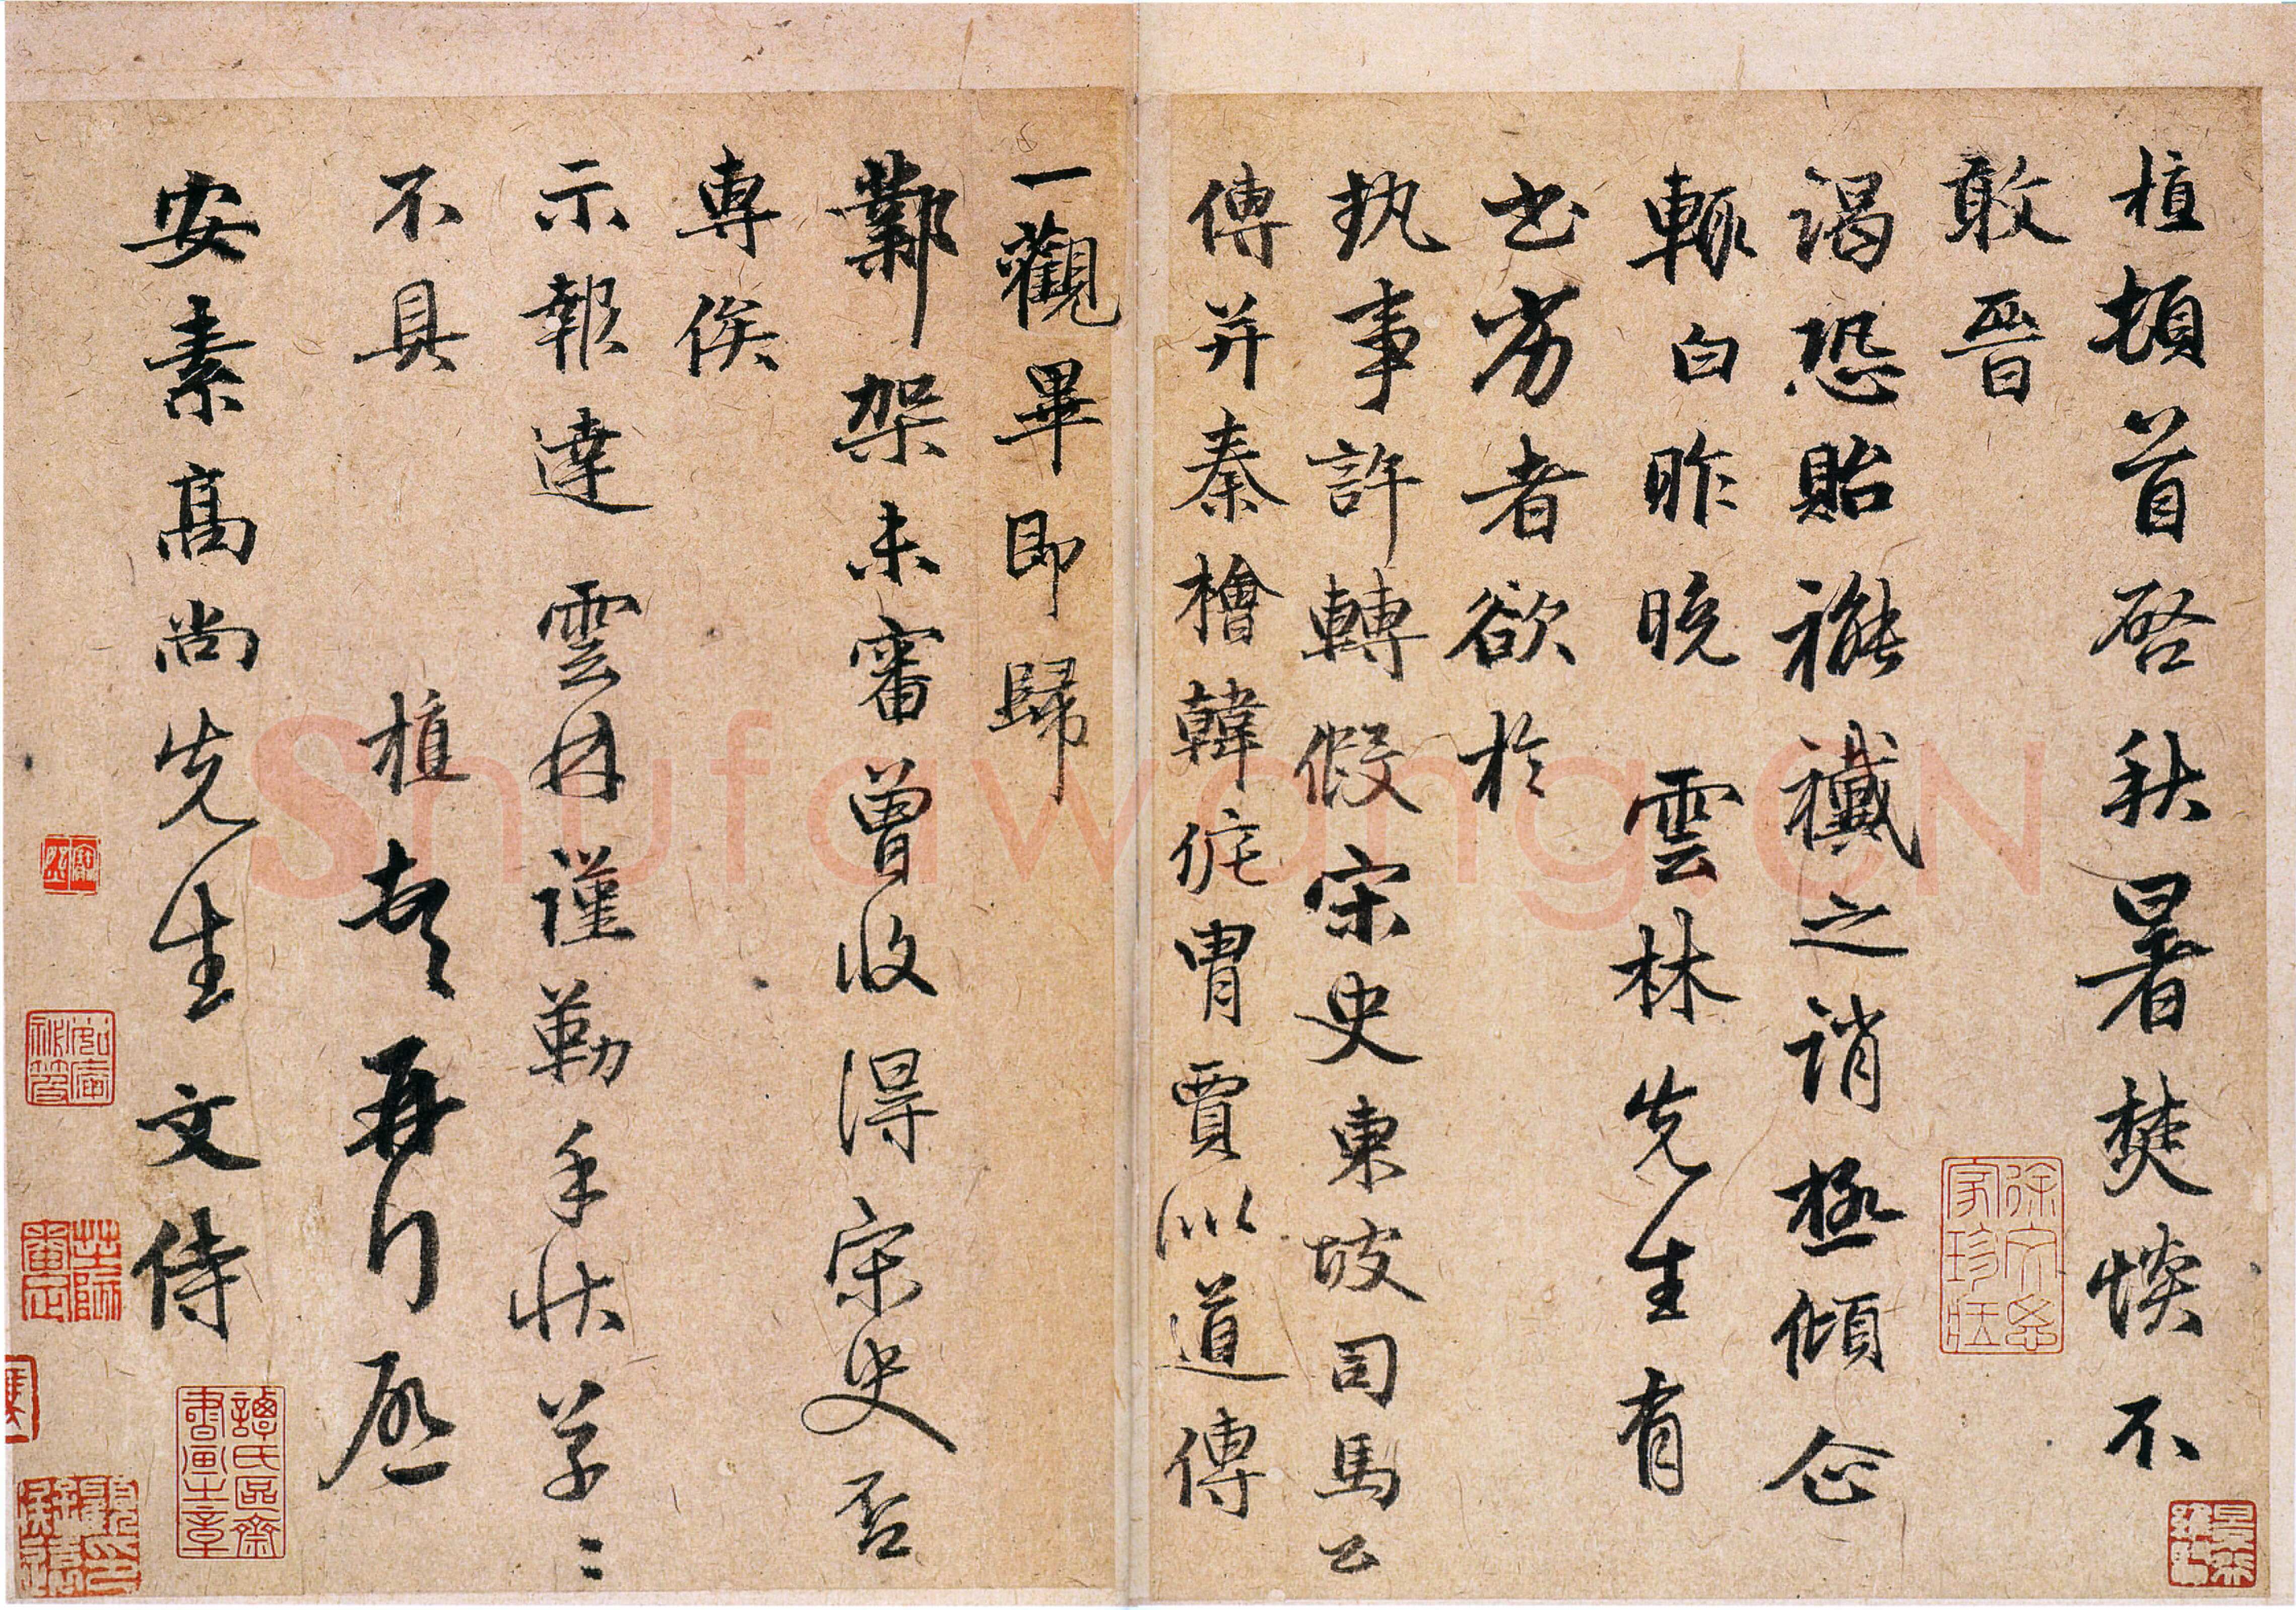 植頓首啓秋暑焚惔不
敢晉
謁恐貽褦襶之誚極傾企
輒白昨晚雲林先生有
書劣者欲於
執事許轉假宋史東坡司馬公
傳并秦檜韓侂冑賈似道傳
一觀畢即歸
鄴架未審曾收得宋史否
專俟
示報達雲林謹勒手狀草〻
不具 植頓首再行啓
安素高尚先生文侍
譚氏區齋書畫之章
ShufawangCN